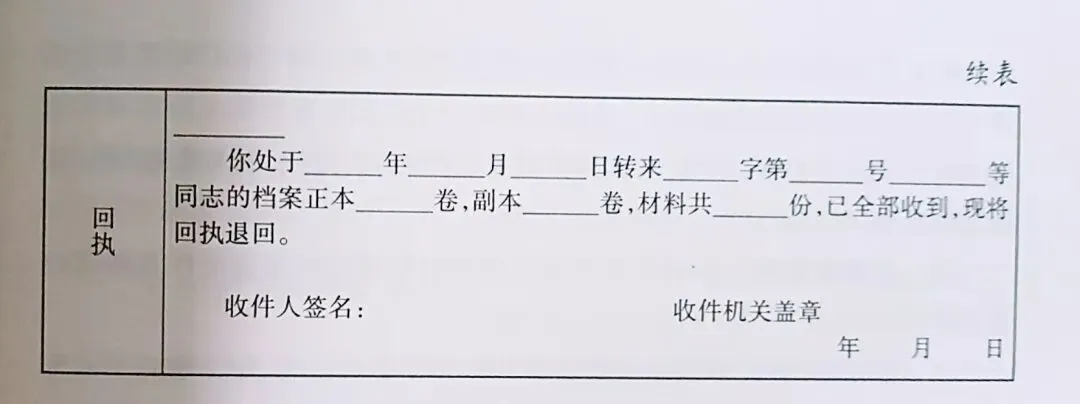 续表
回执
________
你处于______年______月______日转来______字第______号________等
同志的档案正本______卷,副本______卷,材料共______份,已全部收到,现将
回执退回。
收件人签名: 收件机关盖章
年 月 日